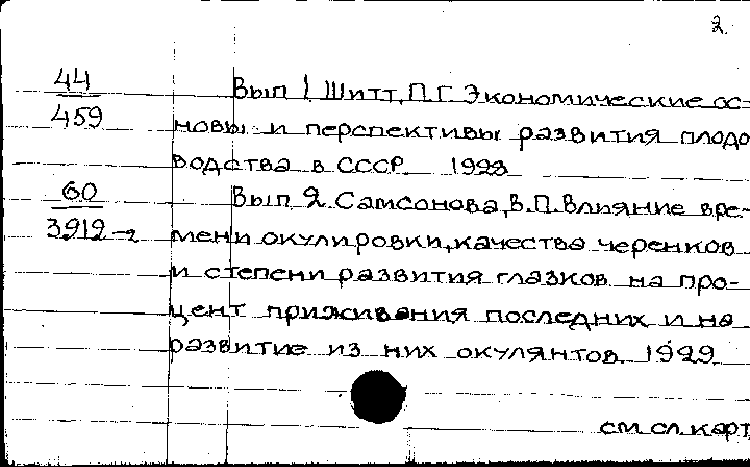 2.
44 Вып 1 Шитт, П.Г. Экономические ос-
459 новы и перспективы развития плодо
водства в СССР 1928
60 Вып 2. Самсонова, В.П. Влияние вре-
3919-2 мени окулировки, качества черенков
и степени развития глазков на про-
цент приживания последних и на
развитие из них окулянтов. 1929
см сл. карт